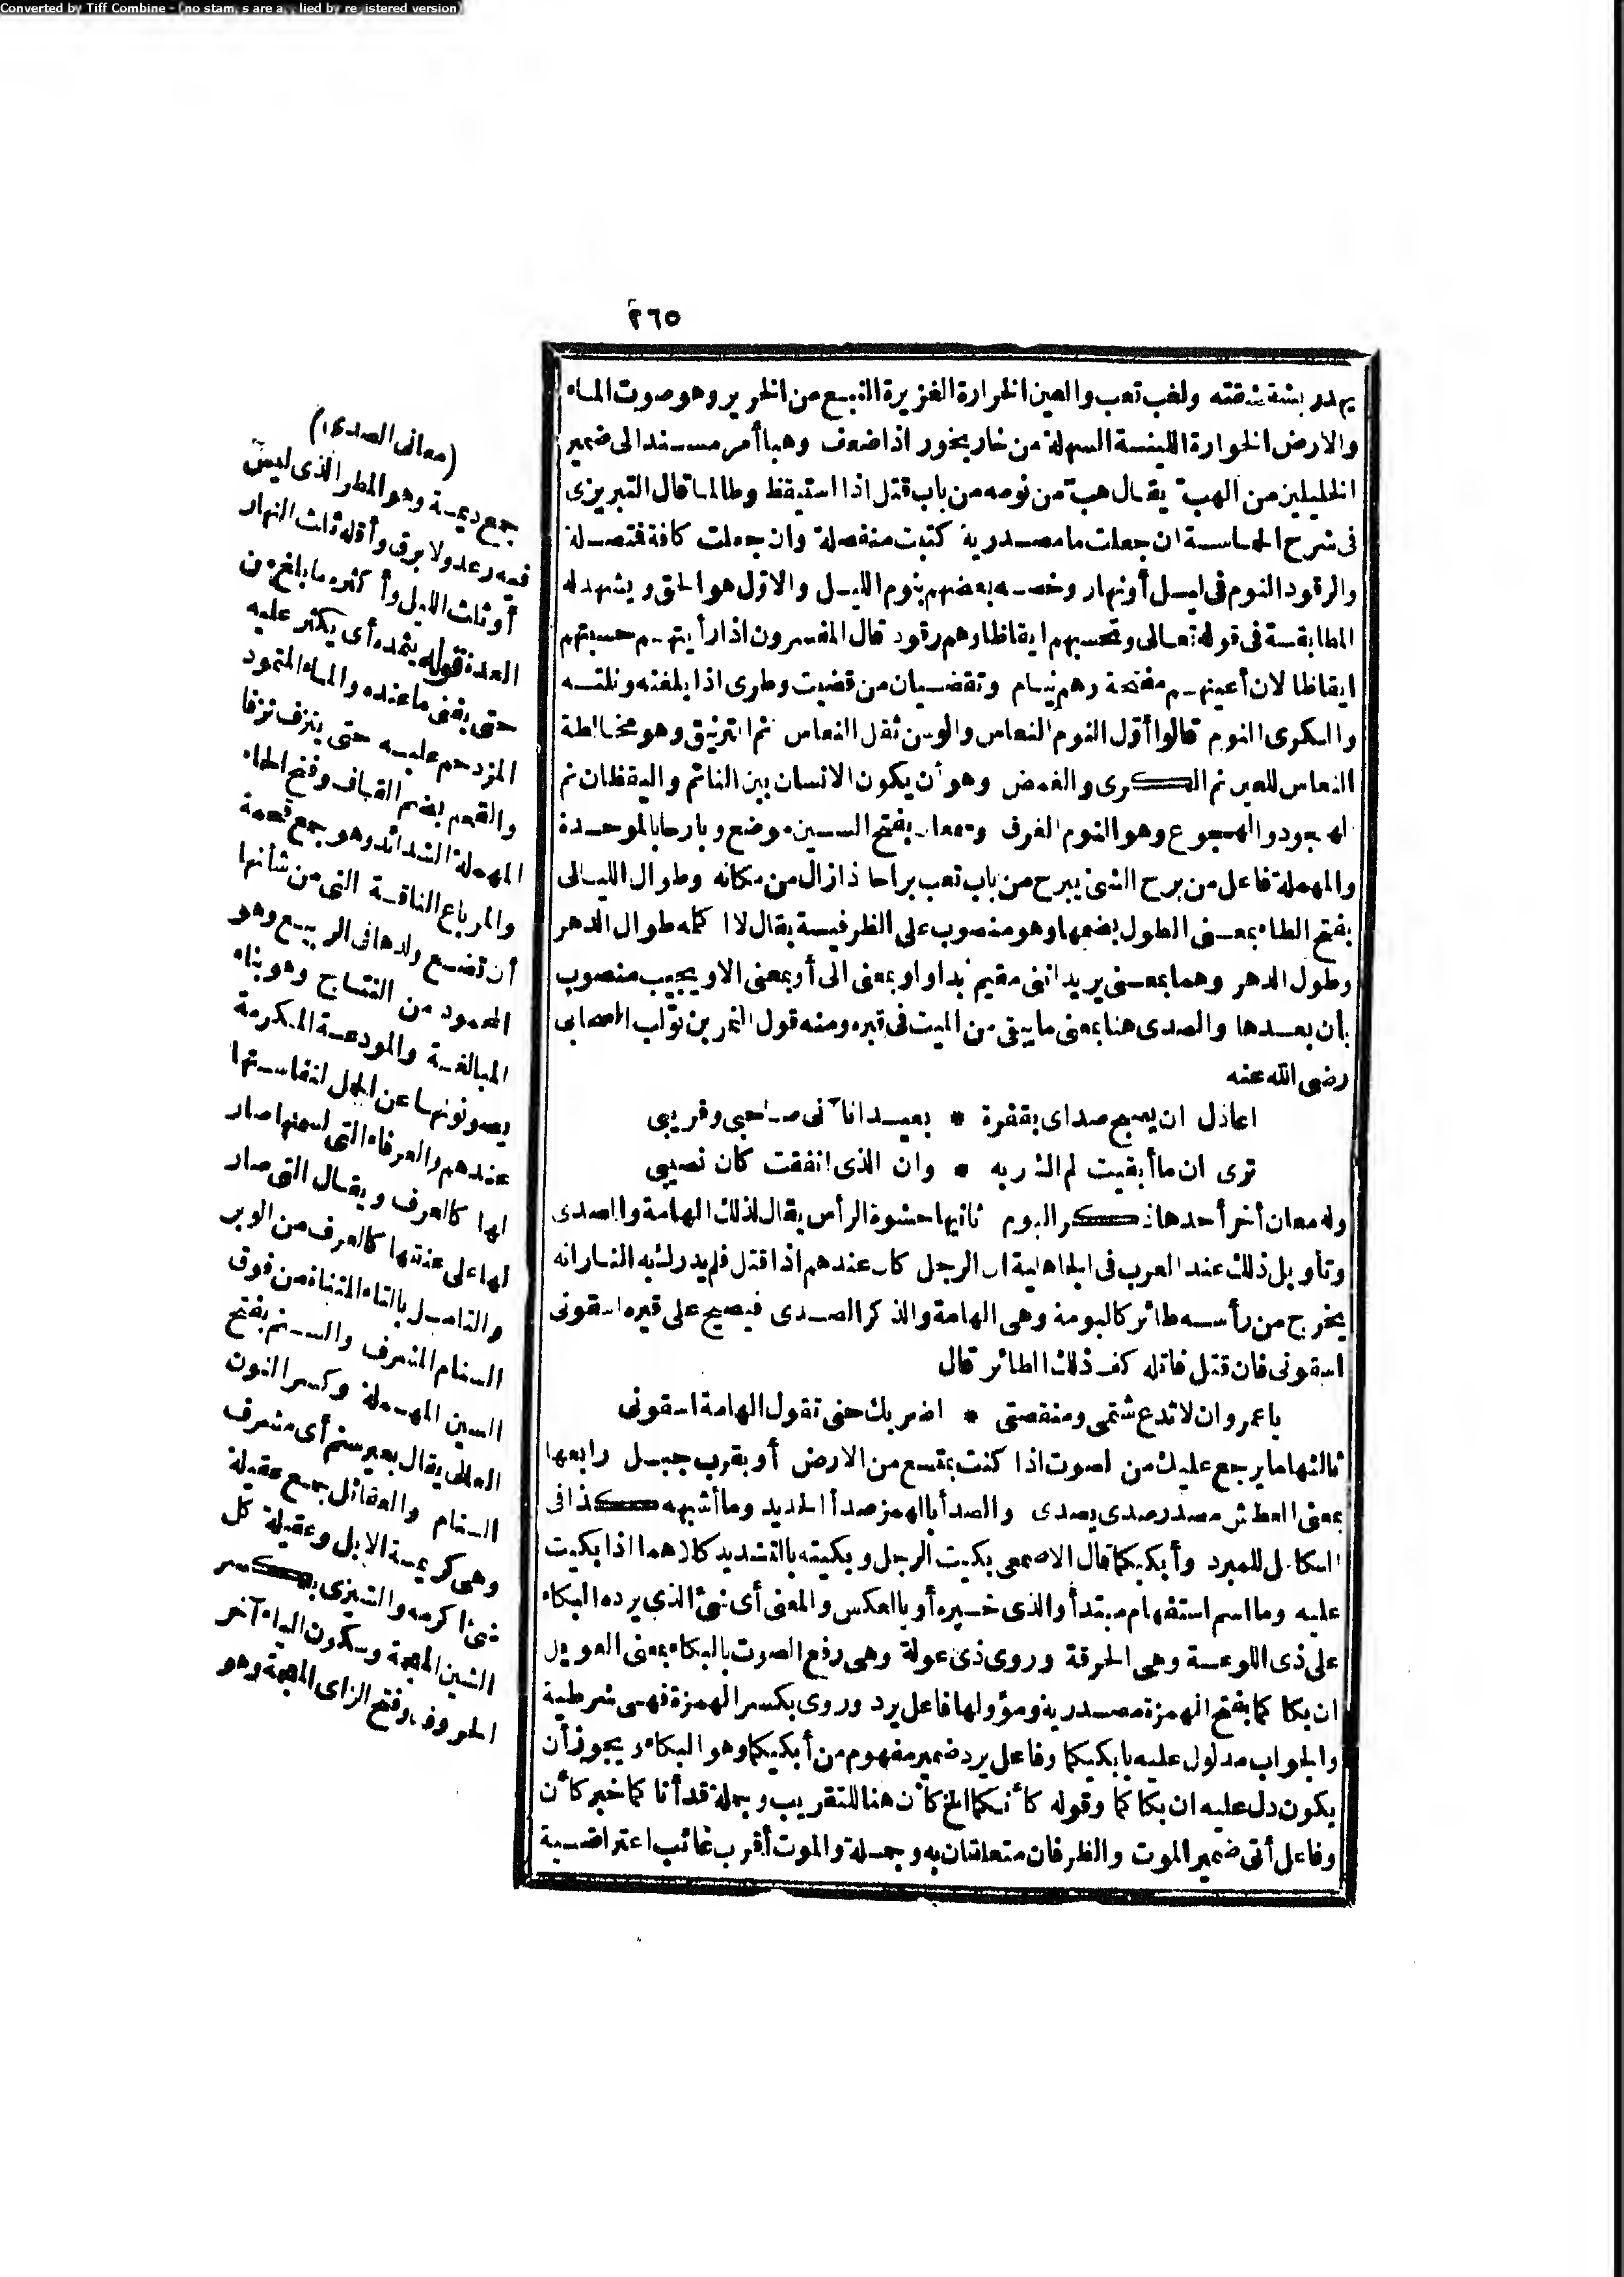 Converted by Tiff Combine - (no stamps are applied by registered version)
٢٦٥
يهدر بشقشقته ولغب تعب والعين الخرارة الغزيرة النبع من الخرير وهو صوت الماء
والارض الخوارة اللينة السهلة من خار يخور اذا ضعف وهبا أمر مسند الى ضمير
الخليلين من الهب يقال هب من نومه من باب قتل اذا استيقظ وطالما قال التبريزى
فى شرح الحماسة ان جعلت ما مصدرية كتبت منفصلة وان جعلت كافة فتصلة
والرقود النوم فى ليل أو نهار وخصه بعضهم بنوم الليل والاول هو الحق ويشهد له
المطابقة فى قوله تعالى وتحسبهم ايقاظا وهم رقود قال المفسرون اذا رأيتهم حسبتهم
ايقاظا لان أعينهم مفتحة وهم نيام وتقضيان من قضيت وطرى اذا بلغته ونلته
والكرى النوم قالوا أول النوم النعاس والوسن ثقل النعاس ثم الترنيق وهو مخالطة
النعاس للعين ثم الكرى والغمض وهو أن يكون الانسان بين النائم واليقظان ثم
الهجود والهجوع وهو النوم الغرق وسمعان بفتح السين موضع وبارحا بالموحدة
والمهملة فاعل من برح الشئ يبرح من باب تعب براحا اذا زال من مكانه وطوال الليالى
بفتح الطاء بمعنى الطول بضمها وهو منصوب على الظرفية يقال لا اكلمه طوال الدهر
وطول الدهر وهما بمعنى يريد اننى مقيم أبدا واو بمعنى الى أو بمعنى الا ويجيب منصوب
بأن بعدها والصدى هنا بمعنى ما يبقى من الميت فى قبره ومنه قول النمر بن تولب الصحابى
رضى الله عنه
اعاذل ان يصبح صداى بقفرة * بعيدا نآنى صاحبى وقريبى
ترى ان ما أبقيت لم اك ربه * وان الذى انفقت كان نصيبى
وله معان أخر أحدها ذكر البوم ثانيها حشوة الرأس يقال لذلك الهامة والصدى
وتأويل ذلك عند العرب فى الجاهلية ان الرجل كان عندهم اذا قتل فلم يدرك به الثار انه
يخرج من رأسه طائر كالبومة وهى الهامة والذكر الصدى فيصيح على قبره اسقونى
اسقونى فان قتل قاتله كف ذلك الطائر قال
يا عمرو ان لا تدع شتمى ومنقصتى * اضربك حتى تقول الهامة اسقونى
ثالثها ما يرجع عليك من الصوت اذا كنت بمتسع من الارض أو بقرب جبل رابعها
بمعنى العطش مصدر صدى يصدى والصدأ بالهمز صدأ الحديد وما أشبهه كذا فى
الكامل للمبرد وأبكيكما قال الاصمعى بكيت الرجل وبكيته بالتشديد كلاهما اذا بكيت
عليه وما اسم استفهام مبتدأ والذى خبره أو بالعكس والمعنى أى شئ الذى يرده البكاء
على ذى اللوعة وهى الحرقة وروى ذى عولة وهى رفع الصوت بالبكاء بمعنى العويل
ان بكاكما بفتح الهمزة مصدرية ومؤولها فاعل يرد وروى بكسر الهمزة فهى شرطية
والجواب مدلول عليه بابكيكما وفاعل يرد ضمير مفهوم من أبكيكما وهو البكاء ويجوز أن
يكون دل عليه ان بكاكما وقوله كأنكما الخ كأن هنا للتقريب وجملة قد أتاكما خبر كأن
وفاعل أتى ضمير الموت والظرفان متعلقان به وجملة والموت أقرب غائب اعتراضية
(معانى الصدى)
جمع ديمة وهو المطر الذى ليس
فيه رعد ولا برق وأقله ثلث النهار
أو ثلث الليل وأكثره ما بلغ من
العدة قوله يثمده أى يكثر عليه
حتى يفنى ما عنده والماء المثمود
المزدحم عليه حتى ينزف نزفا
والقحم بضم القاف وفتح الحاء
المهملة الشدائد وهو جمع قحمة
والمرباع الناقة التى من شأنها
أن تضع ولدها فى الربيع وهو
المحمود من النتاج وهو بناء
المبالغة والمودعة المكرمة
يصونونها عن الحمل لنفاستها
عندهم والعرفاء التى لسمنها صار
لها كالعرف ويقال التى صار
لها على عنقها كالعرف من الوبر
والتامك بالتاء المثناة من فوق
السنام المشرف والسنم بفتح
السين المهملة وكسر النون
العالى يقال بعير سنم أى مشرف
السنام والعقائل جمع عقيلة
وهى كريمة الابل وعقيلة كل
شئ اكرمه والشيزى بكسر
الشين المعجمة وسكون الياء آخر
الحروف وفتح الزاى المعجمة وهو